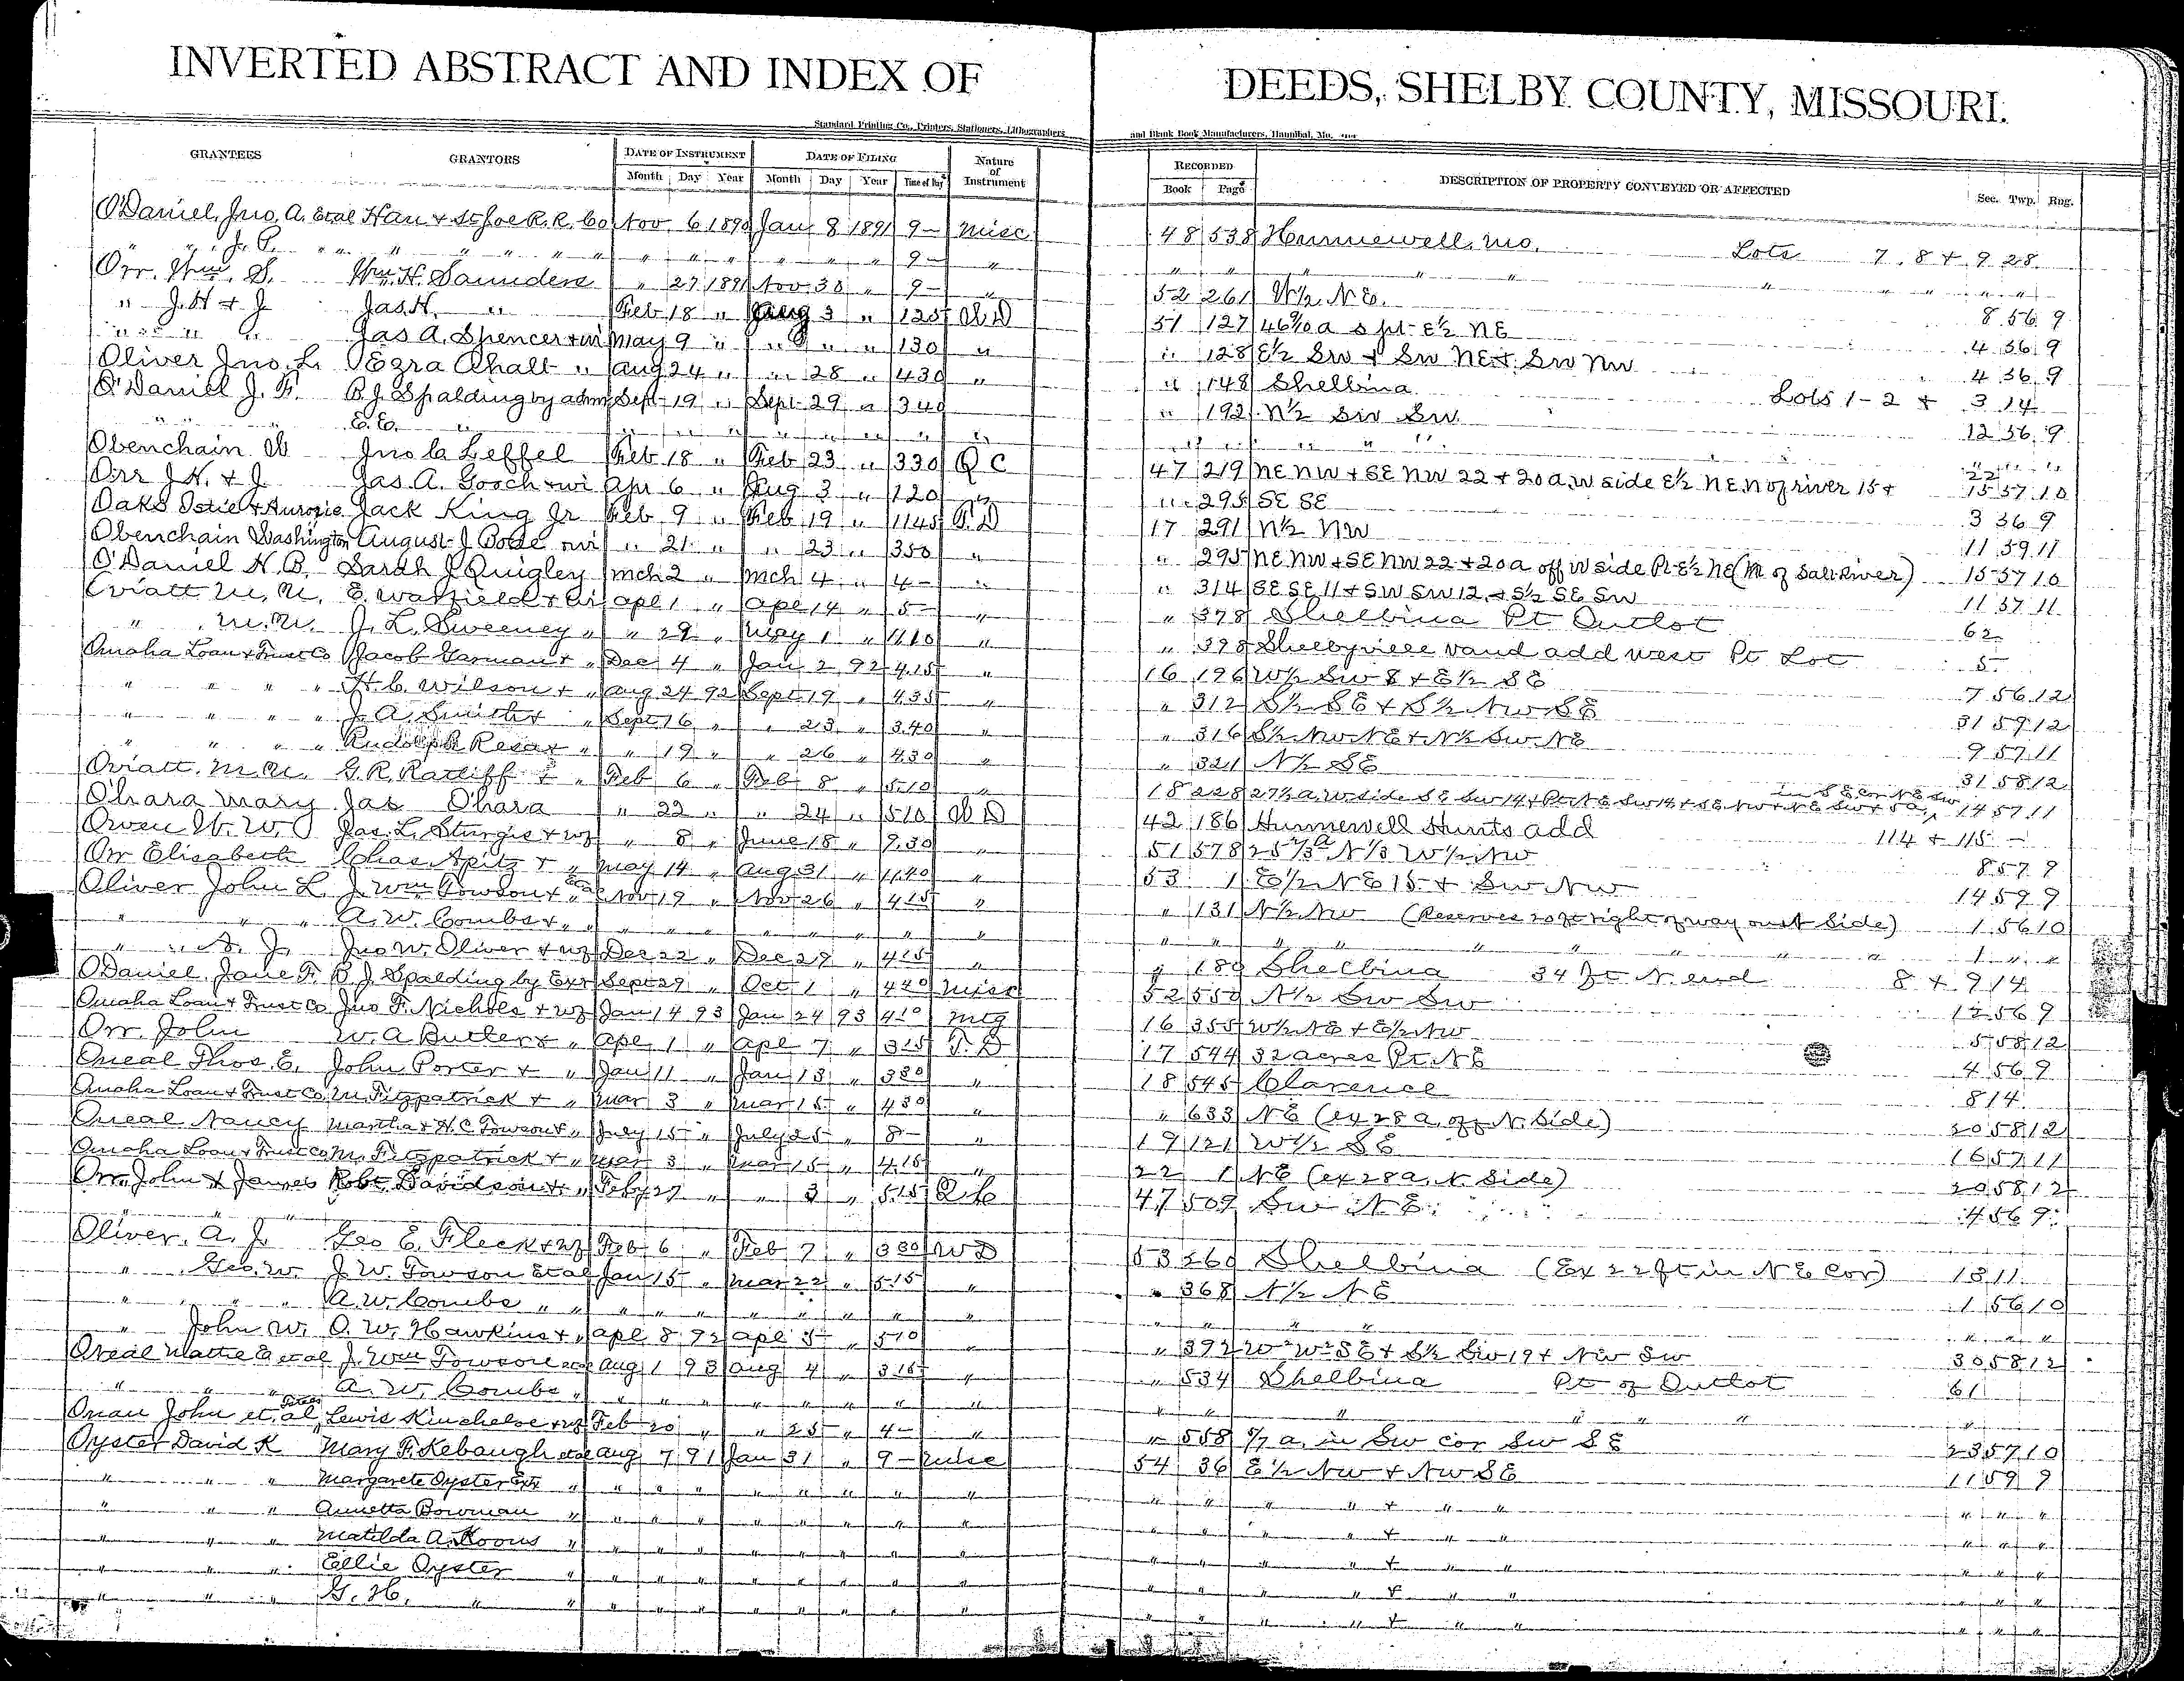 INVERTED ABSTRACT AND INDEX OF DEEDS, SHELBY COUNTY, MISSOURI.
Standard Printing Co., Printers, Stationers, Lithographers and Blank Book Manufacturers, Hannibal, Mo.
GRANTEES GRANTORS DATE OF INSTRUMENT DATE OF FILING Nature of Instrument RECORDED DESCRIPTION OF PROPERTY CONVEYED OR AFFECTED Sec. Twp. Rng.
Month Day Year Month Day Year Time of Day Book Page
O'Daniel, Jno. A. Etal Han & St Joe R. R. Co Nov 6 1890 Jan 8 1891 9 - Misc 48 538 Hunnewell, Mo. Lots 7. 8 & 9 28
" " J. P. " " " " " " " " " " " " 9 - " " " " " " " "
Orr. Wm. S. Wm. H. Saunders " 27 1891 Nov 30 " 9 - " 52 261 W½ NE. 8 56 9
" J. H & J. Jas. H. " Feb 18 " Aug 3 " 125 WD 51 127 46 a s pt E½ NE 4 56 9
" " " " Jas A. Spencer & wi May 9 " " " " 130 " " 128 E½ SW & SW NE & SW NW 4 56 9
Oliver Jno. L. Ezra Chalt " Aug 24 " " 28 " 430 " " 148 Shelbina Lots 1 - 2 & 3 14
O'Daniel J. F. B. J. Spalding by admr Sept 19 " Sept 29 " 340 " 192 N½ SW SW 12 56 9
" " E. E. " " " " " " " " " " " " " " " " "
Obenchain W Jno C Leffel Feb 18 " Feb 23 " 330 Q C 47 219 NE NW & SE NW 22 & 20 a. W side E½ NE. N of river 15 & 22 15 57 10
Orr J. H. & J. Jas A. Gooch & wi Apr 6 " Aug 3 " 120 " " 295 SE SE 3 56 9
Oaks Ostie & Aurozie Jack King Jr Feb 9 " Feb 19 " 1145 T. D 17 291 N½ NW 11 59 11
Obenchain Washington August J Bode & wi " 21 " " 23 " 350 " " 295 NE NW & SE NW 22 & 20 a off W side Pt E½ NE (N of Salt River) 15 57 10
O'Daniel H. B. Sarah J Quigley Mch 2 " Mch 4 " 4 - " " 314 SE SE 11 & SW SW 12 & S½ SE SW 11 57 11
Oviatt M. M. E. Watfield & wi Apl 1 " Apl 14 " 5 - " " 378 Shelbina Pt Outlot 62
" M. M. J. L. Sweeney " " 29 " May 1 " 1110 " " 398 Shelbyville Vand add West Pt Lot 5
Omaha Loan & Trust Co Jacob Garman & " Dec 4 " Jan 2 92 4.15 " 16 196 W½ SW 8 & E½ SE 7 56 12
" " " " H. C. Wilson & " Aug 24 92 Sept 19 " 4.35 " " 312 S½ SE & S½ NW SE 31 59 12
" " " " J. A. Smith & " Sept 16 " " 23 " 340 " " 316 S½ NW NE & N½ SW NE 9 57 11
" " " " Rudolph Resa & " " 19 " " 26 " 430 " " 321 N½ SE 31 58 12
Oviatt. M. M. G. R. Ratliff & " Feb 6 " Feb 8 " 510 " 18 228 27½ a. W side SE SW 14 & Pt NE SW 14 & SE NW & NE SW & 5 a in SE Cor NE SW 14 57 11
O'hara Mary Jas O'hara " 22 " " 24 " 510 W D 42 186 Hunnewell Hunts add 114 & 115 -
Owen W. W. Jas. L. Sturgis & wf " 8 " June 18 " 9.30 " 51 578 25⅓ a N⅓ W½ NW 8 57 9
Orr Elisabeth Chas. Apitz & " May 14 " Aug 31 " 11.40 " 53 1 E½ NE 15 & SW NW 14 59 9
Oliver John L. J. Wm Towson & " Etal Nov 19 " Nov 26 " 415 " " 131 N½ NW (Reserves 20 ft right of way on st Side) 1 56 10
" " " A. W. Combs & " " " " " " " " " " " " " " " " 1 " "
" A. J. Jno W. Oliver & wf Dec 22 " Dec 29 " 415 " " 189 Shelbina 34 ft N. end 8 & 9 14
O'Daniel, Jane F. B. J. Spalding by Exr Sept 29 " Oct 1 " 440 Misc 52 550 N½ SW SW 12 56 9
Omaha Loan & Trust Co Jno F. Nichols & wf Jan 14 93 Jan 24 93 410 Mtg 16 355 W½ NE & E½ NW 5 58 12
Orr John W. A Butler & " Apl 1 " Apl 7 " 315 T. D 17 544 32 acres Pt NE 4 56 9
Oneal Thos. E. John Porter & " Jan 11 " Jan 13 " 330 " 18 545 Clarence 8 14
Omaha Loan & Trust Co M. Fitzpatrick & " Mar 3 " Mar 15 " 430 " " 633 NE (ex 28 a. off N. Side) 20 58 12
Oneal Nancy Martha & H. C. Towson & " July 15 " July 25 " 8 - " 19 121 W½ SE 16 57 11
Omaha Loan & Trust Co M. Fitzpatrick & " Mar 3 " Mar 15 " 4.15 " 22 1 NE (ex 28 a. N. Side) 20 58 12
Orr, John & James Robt Davidson & " Feb 27 " " 3 " 5.15 Q. C. 47 509 SW NE 4 56 9
" "
Oliver. A. J. Geo E. Fleck & wf Feb 6 " Feb 7 " 330 WD 53 260 Shelbina (Ex 22 ft in NE Cor) 13 11
" Geo. W. J. W. Towson Etal Jan 15 " Mar 22 " 5.15 " " 368 N½ NE 1 56 10
" " " A. W. Combs " " " " " " " " " " " " " " " " "
" John W. O. W. Hawkins & " Apl 8 92 Apl 5 " 510 " 392 W² W² SE & S½ SW 19 & NW SW 30 58 12
Oneal Mattie E et al J. Wm Towson etal Aug 1 93 Aug 4 " 3 15 " 534 Shelbina Pt of Outlot 61
" " " A. W. Combs " " " " " " " " " " " " " " " "
Onan John et al Lewis Kincheloe & wf Feb 20 " " 25 " 4 - " " 558 5/7 a. in SW cor SW SE 23 57 10
Oyster David K Mary F. Kebaugh etal Aug 7 91 Jan 31 " 9 - Misc 54 36 E½ NW & NW SE 11 59 9
" " " Margarete Oyster Extr " " " " " " " " " " " " & " " " " "
" " " Annetta Bowman " " " " " " " " " " " " & " " " " "
" " " Matilda A. Koons " " " " " " " " " " " " & " " " " "
" " " Ellie Oyster " " " " " " " " " " " " & " " " " "
" " " G. H. " " " " " " " " " " " " " & " " " " "